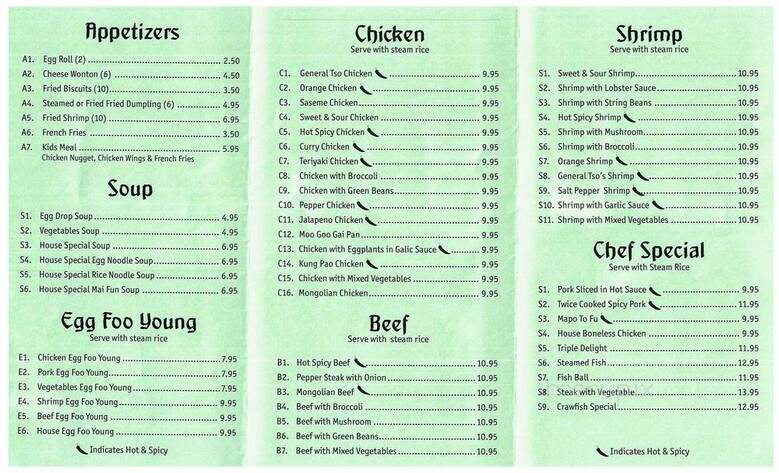 Appetizers
A1. Egg Roll (2) 2.50
A2. Cheese Wonton (6) 4.50
A3. Fried Biscuits (10) 3.50
A4. Steamed or Fried Fried Dumpling (6) 4.95
A5. Fried Shrimp (10) 6.95
A6. French Fries 3.50
A7. Kids Meal 5.95
Chicken Nugget, Chicken Wings & French Fries
Soup
S1. Egg Drop Soup 4.95
S2. Vegetables Soup 4.95
S3. House Special Soup 6.95
S4. House Special Egg Noodle Soup 6.95
S5. House Special Rice Noodle Soup 6.95
S6. House Special Mai Fun Soup 6.95
Egg Foo Young
Serve with steam rice
E1. Chicken Egg Foo Young 7.95
E2. Pork Egg Foo Young 7.95
E3. Vegetables Egg Foo Young 7.95
E4. Shrimp Egg Foo Young 9.95
E5. Beef Egg Foo Young 9.95
E6. House Egg Foo Young 9.95
Indicates Hot & Spicy
Chicken
Serve with steam rice
C1. General Tso Chicken 9.95
C2. Orange Chicken 9.95
C3. Saseme Chicken 9.95
C4. Sweet & Sour Chicken 9.95
C5. Hot Spicy Chicken 9.95
C6. Curry Chicken 9.95
C7. Teriyaki Chicken 9.95
C8. Chicken with Broccoli 9.95
C9. Chicken with Green Beans 9.95
C10. Pepper Chicken 9.95
C11. Jalapeno Chicken 9.95
C12. Moo Goo Gai Pan 9.95
C13. Chicken with Eggplants in Galic Sauce 9.95
C14. Kung Pao Chicken 9.95
C15. Chicken with Mixed Vegetables 9.95
C16. Mongolian Chicken 9.95
Beef
Serve with steam rice
B1. Hot Spicy Beef 10.95
B2. Pepper Steak with Onion 10.95
B3. Mongolian Beef 10.95
B4. Beef with Broccoli 10.95
B5. Beef with Mushroom 10.95
B6. Beef with Green Beans 10.95
B7. Beef with Mixed Vegetables 10.95
Shrimp
Serve with steam rice
S1. Sweet & Sour Shrimp 10.95
S2. Shrimp with Lobster Sauce 10.95
S3. Shrimp with String Beans 10.95
S4. Hot Spicy Shrimp 10.95
S5. Shrimp with Mushroom 10.95
S6. Shrimp with Broccoli 10.95
S7. Orange Shrimp 10.95
S8. General Tso's Shrimp 10.95
S9. Salt Pepper Shrimp 10.95
S10. Shrimp with Garlic Sauce 10.95
S11. Shrimp with Mixed Vegetables 10.95
Chef Special
Serve with Steam Rice
S1. Pork Sliced in Hot Sauce 9.95
S2. Twice Cooked Spicy Pork 11.95
S3. Mapo To Fu 9.95
S4. House Boneless Chicken 9.95
S5. Triple Delight 11.95
S6. Steamed Fish 12.95
S7. Fish Ball 11.95
S8. Steak with Vegetable 13.95
S9. Crawfish Special 12.95
Indicates Hot & Spicy